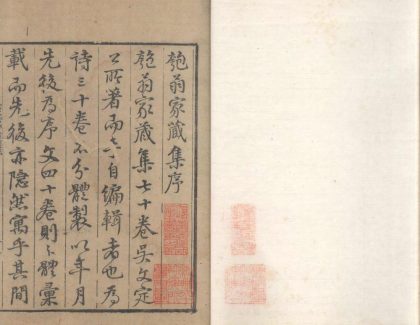 匏翁家藏集序
匏翁家藏集七十卷吳文定
公所著而公自編輯者也為
詩三十卷不分體製以年月
先後為序文四十卷則以體彙
載而先後亦隱然寓乎其間